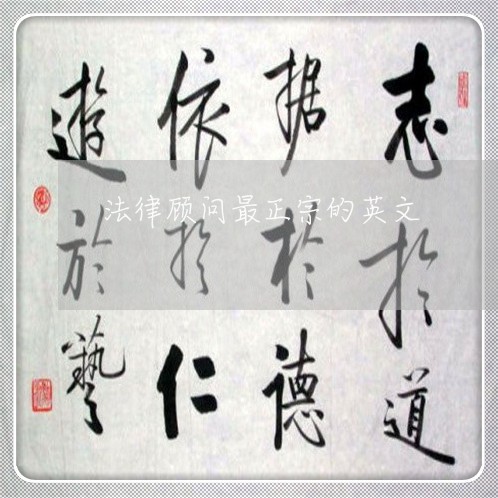 志於道
据於德
依於仁
遊於藝
法律顾问最正宗的英文